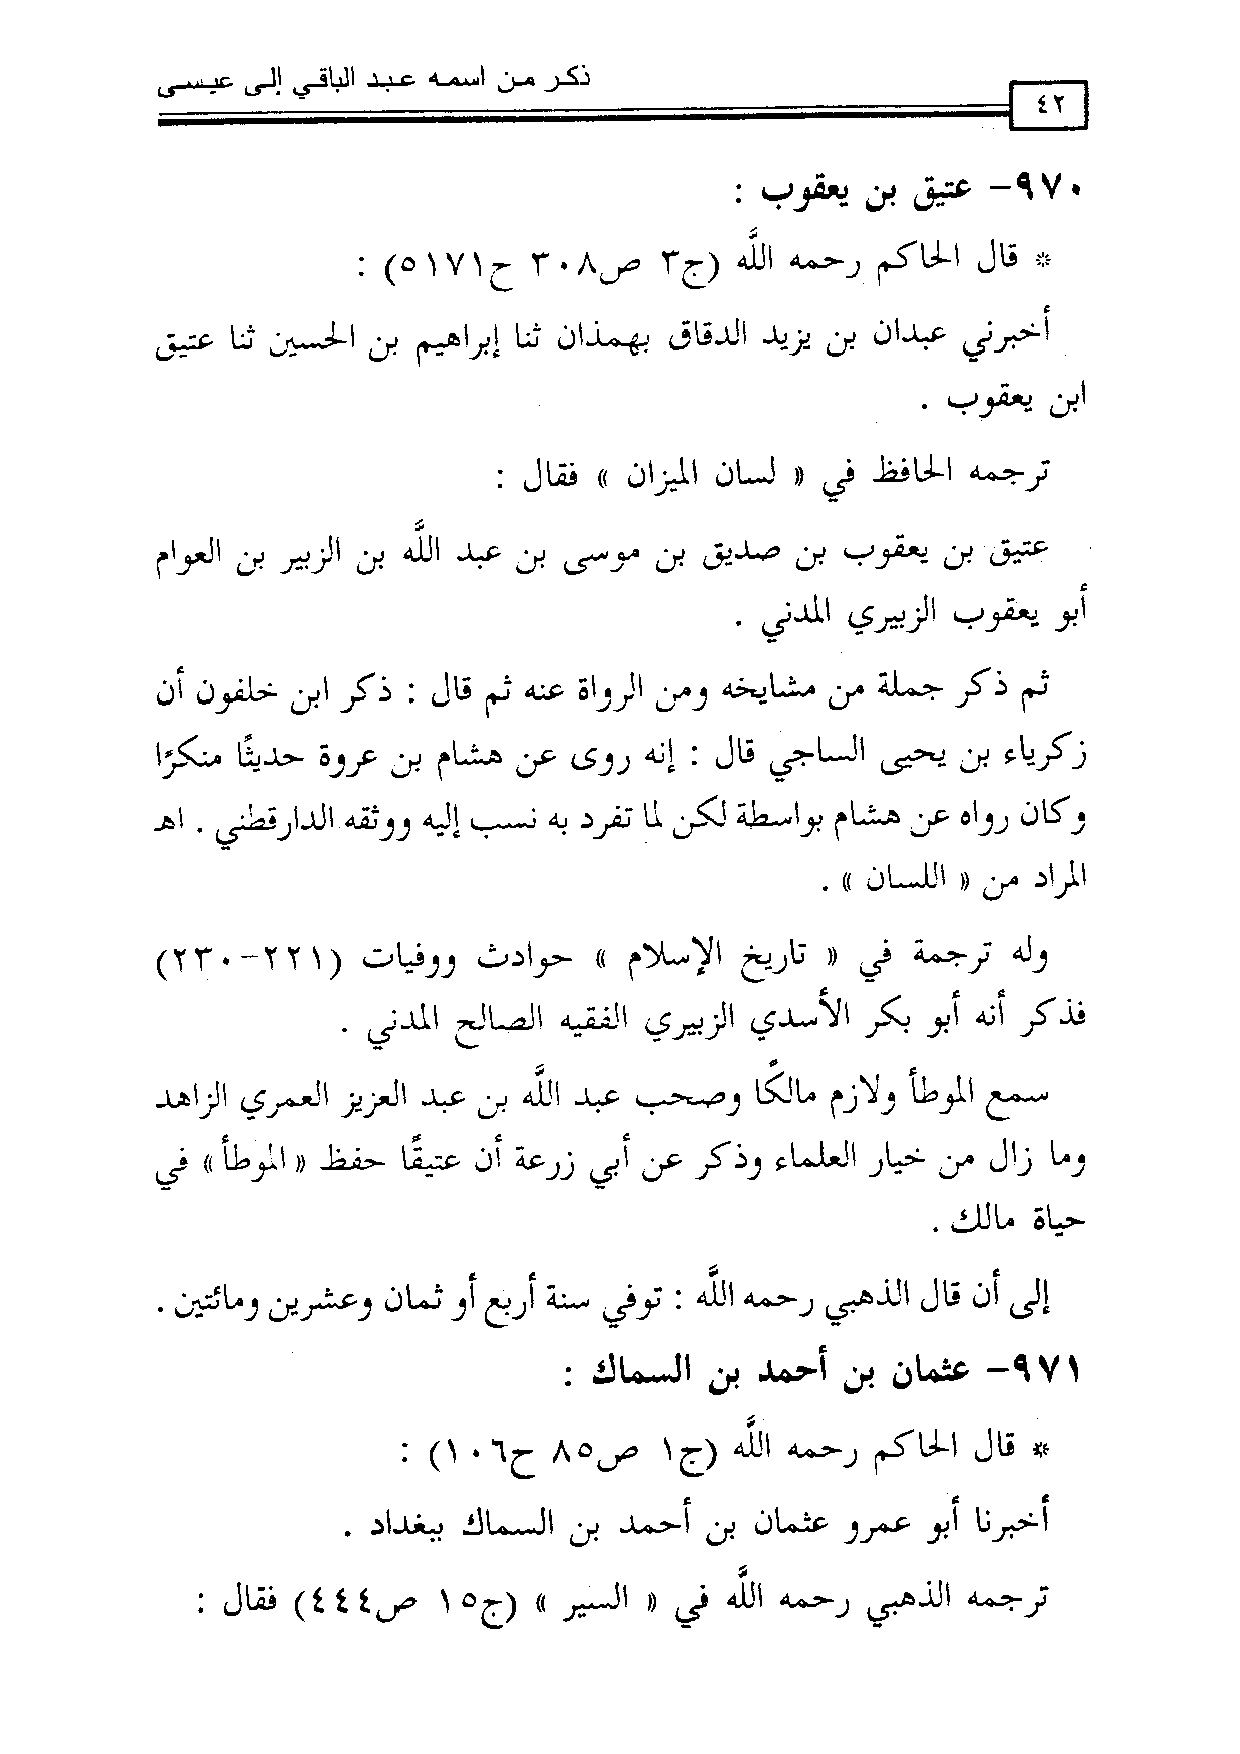 ذكر من اسمه عبد الباقي إلى عيسى
٤٢
٩٧٠- عتيق بن يعقوب :
* قال الحاكم رحمه اللَّه (ج٣ ص٣٠٨ ح٥١٧١) :
أخبرني عبدان بن يزيد الدقاق بهمذان ثنا إبراهيم بن الحسين ثنا عتيق
ابن يعقوب .
ترجمه الحافظ في « لسان الميزان » فقال :
عتيق بن يعقوب بن صديق بن موسى بن عبد اللَّه بن الزبير بن العوام
أبو يعقوب الزبيري المدني .
ثم ذكر جملة من مشايخه ومن الرواة عنه ثم قال : ذكر ابن خلفون أن
زكرياء بن يحيى الساجي قال : إنه روى عن هشام بن عروة حديثًا منكرًا
وكان رواه عن هشام بواسطة لكن لما تفرد به نسب إليه ووثقه الدارقطني . اهـ
المراد من « اللسان » .
وله ترجمة في « تاريخ الإسلام » حوادث ووفيات (٢٢١-٢٣٠)
فذكر أنه أبو بكر الأسدي الزبيري الفقيه الصالح المدني .
سمع الموطأ ولازم مالكًا وصحب عبد اللَّه بن عبد العزيز العمري الزاهد
وما زال من خيار العلماء وذكر عن أبي زرعة أن عتيقًا حفظ «الموطأ» في
حياة مالك .
إلى أن قال الذهبي رحمه اللَّه : توفي سنة أربع أو ثمان وعشرين ومائتين .
٩٧١- عثمان بن أحمد بن السماك :
* قال الحاكم رحمه اللَّه (ج١ ص٨٥ ح١٠٦) :
أخبرنا أبو عمرو عثمان بن أحمد بن السماك ببغداد .
ترجمه الذهبي رحمه اللَّه في « السير » (ج١٥ ص٤٤٤) فقال :